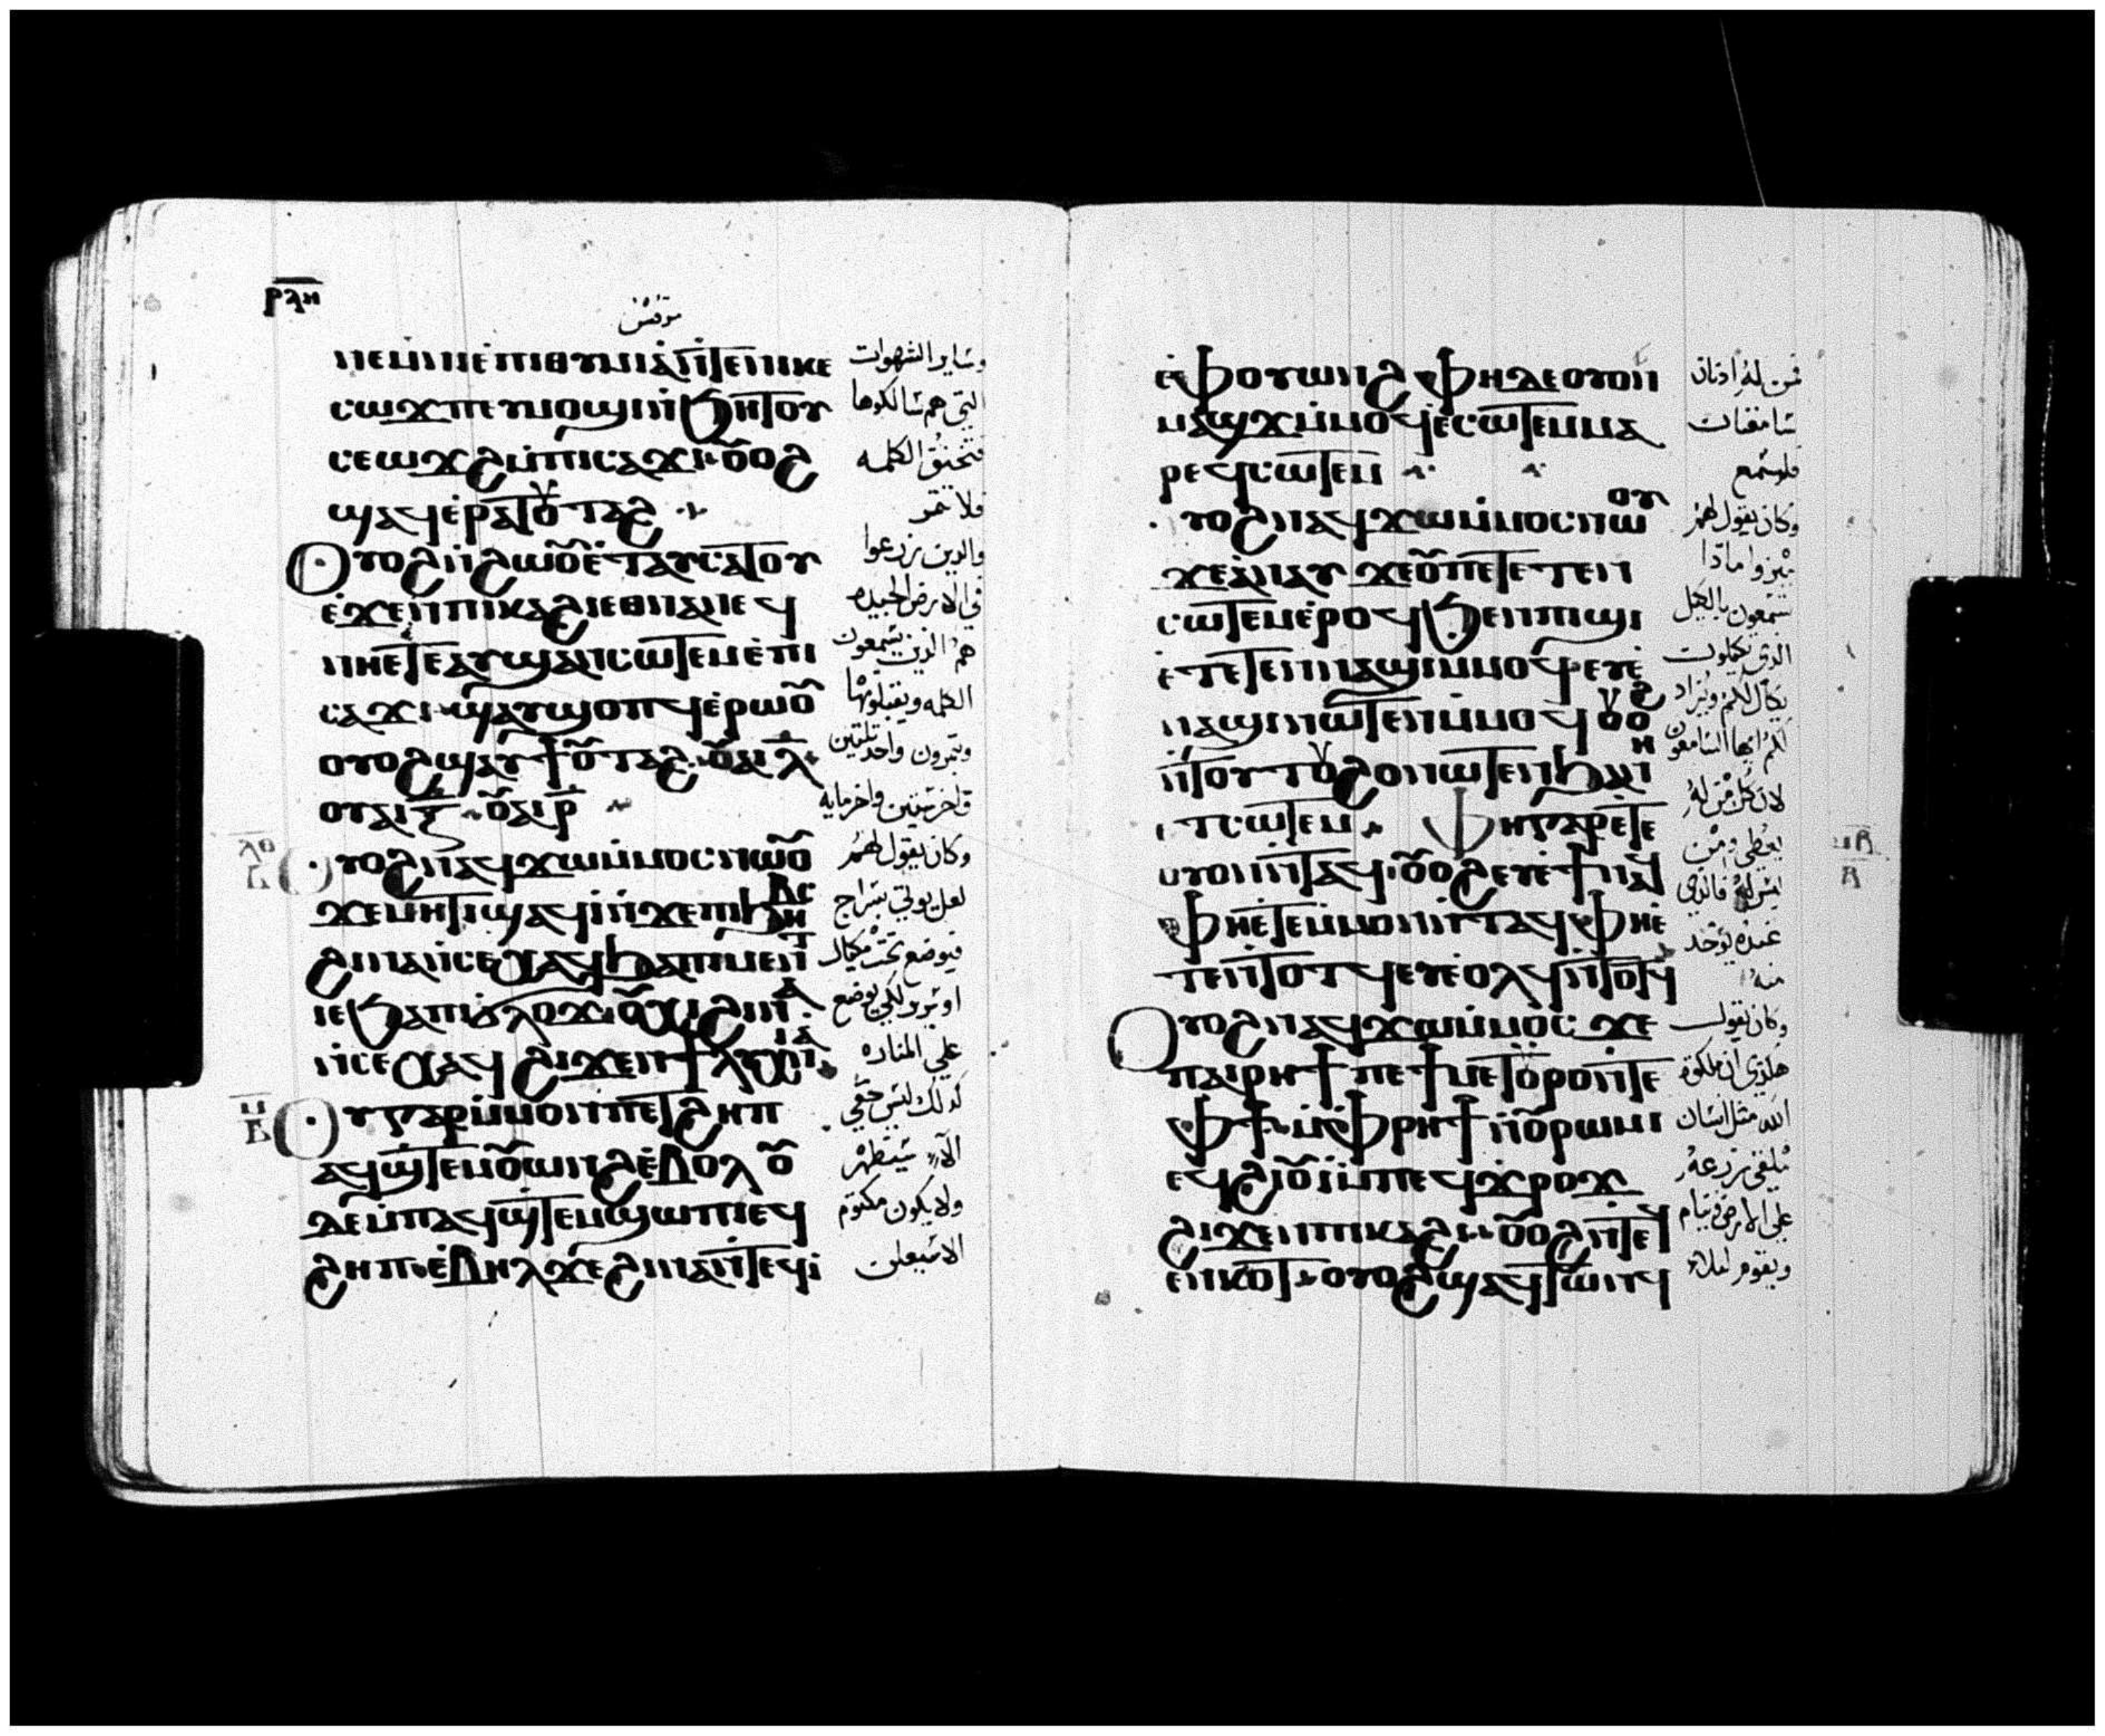 ⲣⲗⲏ
مرقس
ⲛⲉⲙⲛⲓⲉⲡⲓⲑⲩⲙⲓⲁⲛ̀ⲧⲉⲡⲓⲕⲉ وساير الشهوات
ⲥⲱϫⲡⲉⲩⲙⲟϣⲓⲛ̀ϧⲏⲧⲟⲩ التي هم سالكوها
ⲥⲉⲱϫϩⲙ̀ⲡⲓⲥⲁϫⲓ ⲟⲩⲟϩ فتخنق الكلمه
ϣⲁϥⲉ̀ⲣⲁⲧⲟⲩⲧⲁϩ فلا تثمر
ⲟⲩⲟϩⲛ̀ϩⲱⲟⲩⲉ̀ⲧⲁⲩⲥⲁⲧⲟⲩ والدين زرعوا
ⲉ̀ϫⲉⲛⲡⲓⲕⲁϩⲓⲉⲑⲛⲁⲛⲉϥ في الارض الجيده
ⲛⲏⲉ̀ⲧⲉⲁⲩϣⲁⲛⲥⲱⲧⲉⲙⲉ̀ⲡⲓ هم الذين يسمعون
ⲥⲁϫⲓ ϣⲁⲩϣⲟⲡϥⲉ̀ⲣⲱⲟⲩ الكلمه ويقبلونها
ⲟⲩⲟϩϣⲁⲩϯⲟⲩⲧⲁϩ ⲟⲩⲁⲓ ⲗ̅ ويثمرون واحد ثلثين
ⲟⲩⲁⲓ ⲝ̅ ⲟⲩⲁⲓ ⲣ̅ واخر ستين واخر مايه
ⲟⲩⲟϩⲛⲁϥϫⲱⲙ̀ⲙⲟⲥⲛⲱⲟⲩ وكان يقول لهم
ϫⲉⲙⲏⲧⲓϣⲁϥⲓ̀ⲛ̀ϫⲉⲡⲓϧⲏⲃⲥ لعل يوتي بسراج
ϩⲓⲛⲁⲛ̀ⲥⲉⲭⲁϥϧⲁⲡⲓⲙⲉⲛⲧ فيوضع تحت مكيال
ⲓⲉϧⲁⲡⲓϭⲗⲟϫ ⲟⲩⲭⲓ ϩⲓⲛⲁ او سرير لكي يوضع
ⲛ̀ⲥⲉⲭⲁϥ ϩⲓϫⲉⲛϯⲗⲩⲭⲛⲓⲁ علي المناره
ⲟⲩⲅⲁⲣⲙ̀ⲙⲟⲛⲡⲉⲧϩⲏⲡ كذلك ليس خفي
ⲁϥϣ̀ⲧⲉⲙⲟⲩⲱⲛϩⲉ̀ⲃⲟⲗ ⲟⲩ الا سيظهر
ⲇⲉⲙ̀ⲡⲁϥϣ̀ⲧⲉⲙϣⲱⲡⲓⲉϥ ولا يكون مكتوم
ϩⲏⲡ ⲉ̀ⲃⲏⲗϫⲉϩⲓⲛⲁⲛ̀ⲧⲉϥⲓ̀ الا سيعلن
ⲉ̀ⲫⲟⲩⲱⲛϩ ⲫⲏⲇⲉⲟⲩⲟⲛ فمن له ادنان
ⲙⲁϣϫⲙ̀ⲙⲟϥⲉ̀ⲥⲱⲧⲉⲙⲙⲁ سامعتان
ⲣⲉϥⲥⲱⲧⲉⲙ فليسمع
ⲟⲩⲟϩⲛⲁϥϫⲱⲙ̀ⲙⲟⲥⲛⲱⲟⲩ وكان يقول لهم
ϫⲉⲁⲛⲁⲩ ϫⲉⲟⲩⲡⲉⲧⲉⲧⲉⲛ ميزوا ماذا
ⲥⲱⲧⲉⲙⲉ̀ⲣⲟϥϧⲉⲛⲡⲓϣⲓ تسمعون بالكيل
ⲉ̀ⲧⲉⲧⲉⲛⲛⲁϣⲓⲙ̀ⲙⲟϥⲉⲩⲉ̀ الذي تكيلون
ⲛⲁϣⲓⲛⲱⲧⲉⲛⲙ̀ⲙⲟϥ ⲟⲩⲟϩ يكال لكم ويزاد
ⲛ̀ⲧⲟⲩⲧⲟⲩϩⲟⲛⲱⲧⲉⲛϧⲁⲛⲏ لكم ايها السامعون
ⲉⲧⲥⲱⲧⲉⲙ ⲫⲏⲅⲁⲣⲉⲧⲉ لان كل من له
ⲟⲩⲟⲛⲛ̀ⲧⲁϥ ⲟⲩⲟϩⲉⲩⲉ̀ϯⲛⲁϥ يعطي ومن
ⲫⲏⲉ̀ⲧⲉⲙ̀ⲙⲟⲛⲛ̀ⲧⲁϥⲫⲏⲉ̀ ليس له فالذي
ⲧⲉⲛⲧⲟⲧϥⲉⲩⲉ̀ⲟⲗϥⲛ̀ⲧⲟⲧϥ عنده يوخد منه
ⲟⲩⲟϩⲛⲁϥϫⲱⲙ̀ⲙⲟⲥ ϫⲉ وكان يقول
ⲡⲁⲓⲣⲏϯ ⲡⲉ ϯⲙⲉⲧⲟⲩⲣⲟⲛ̀ⲧⲉ هكذي ان ملكوة
ⲫϯ ⲙ̀ⲫⲣⲏϯ ⲛ̀ⲟⲩⲣⲱⲙⲓ الله مثل انسان
ⲉϥϩⲓⲟⲩⲓ̀ⲙ̀ⲡⲉϥϫⲣⲟϫ يلقي زرعه
ϩⲓϫⲉⲛⲡⲓⲕⲁϩⲓ ⲟⲩⲟϩⲛ̀ⲧⲉϥ علي الارض فينام
ⲉⲛⲕⲟⲧ ⲟⲩⲟϩϣⲁϥⲧⲱⲛϥ ويقوم ليلا